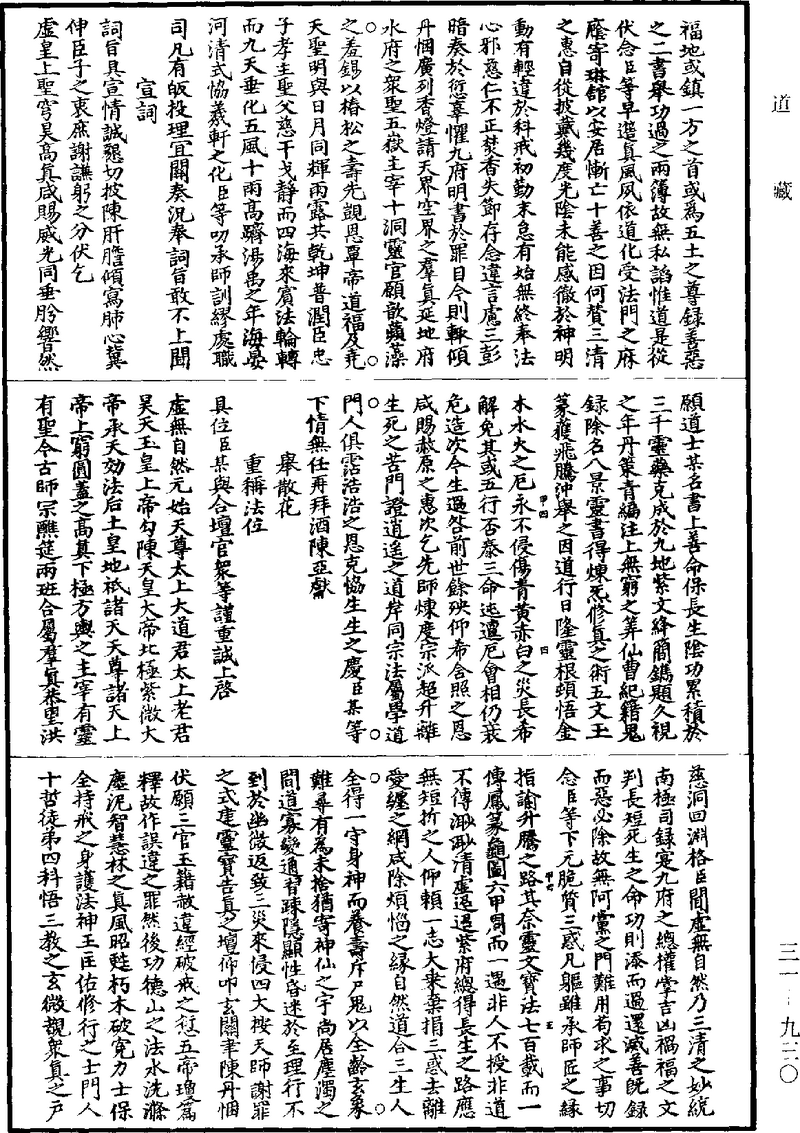 道藏
三一·九三〇
福地或鎮一方之首或爲五土之尊録善惡
之二書舉功過之兩簿故無私謟惟道是從
伏念臣等早邅真風夙依道化受法門之庥
廕寄琳館以安居慚亡十善之因何贊三清
之惠自從披戴幾度光陰未能感徹於神明
動有輕違於科戒初勤末怠有始無終奉法
心邪慈仁不正焚香失節存念違言慮三彭
暗奏於愆辜懼九府明書於罪目今則輙傾
丹悃廣列香燈請天界空界之羣真延地府
水府之衆聖五嶽主宰十洞靈官願歆蘋藻
之羞錫以椿松之壽先覬恩覃帝道福及堯
天聖明與日月同輝雨露共乾坤普潤臣忠
子孝主聖父慈干戈静而四海來賓法輪轉
而九天垂化五風十雨高躋湯禹之年海晏
河清式協羲軒之化臣等叨承師訓繆處職
司凡有皈投理宜關奏況奉詞旨敢不上聞
宣詞
詞旨具宣情誠懇切披陳肝膽傾寫肺心冀
伸臣子之衷庶謝謙躬之分伏乞
虚皇上聖穹昊高真咸賜威光同垂肹響然
願道士某名書上善命保長生陰功累積於
三千靈藥克成於九地紫文絳簡鐫題久視
之年丹策青編注上無窮之筭仙曹紀籍鬼
録除名八景靈書得煉炁修真之術五文玉
篆獲飛騰沖舉之因道行日隆靈根頓悟金
木水火之厄永不侵傷青黄赤白之災長希
解免其或五行否泰三命迍邅厄會相仍衰
危造次今生過咎前世餘殃仰希含照之恩
咸賜赦原之惠次乞先師煉度宗派超升離
生死之苦門證逍遥之道岸同宗法屬學道
門人俱霑浩浩之恩克協生生之慶臣某等
下情無任再拜酒陳亞獻
舉散花
重稱法位
具位臣某與合壇官衆等謹重誠上啓
虚無自然元始天尊太上大道君太上老君
昊天玉皇上帝勾陳天皇大帝北極紫微大
帝承天効法后土皇地祇諸天天尊諸天上
帝上窮圓蓋之高真下極方輿之主宰有靈
有聖今古師宗醮筵兩班合屬羣真恭望洪
慈洞回淵格臣聞虚無自然乃三清之妙統
南極司録寔九府之總權掌吉凶禍福之文
判長短死生之命功則添而過還滅善既録
而惡必除故無阿黨之門難用苟求之事切
念臣等下元脆質三惑凡軀雖承師匠之緣
指諭升騰之路其奈靈文寶法七百載而一
傳鳳篆龜圖六甲周而一遇非人不授非道
不傳濔濔清虚遥遥紫府總得長生之路應
無短折之人仰賴一志大乘棄捐三惑去離
愛纏之網咸除煩惱之緣自然道合三生人
全得一守身神而養壽斥尸鬼以全齡玄象
難尋有爲未捨猶寄神仙之宇尚居塵濁之
間道寡變通智疎隱顯性昏迷於至理行不
到於幽微返致三災來侵四大按天師謝罪
之式建靈寶告真之壇仰叩玄關聿陳丹悃
伏願三官玉籍赦違經破戒之愆五帝瓊篇
釋故作誤違之罪然後功德山之法水洗滌
塵泥智慧林之真風昭甦朽木破寃力士保
全持戒之身護法神王匡佑修行之士門人
十哲徒弟四科悟三教之玄微覩衆真之户